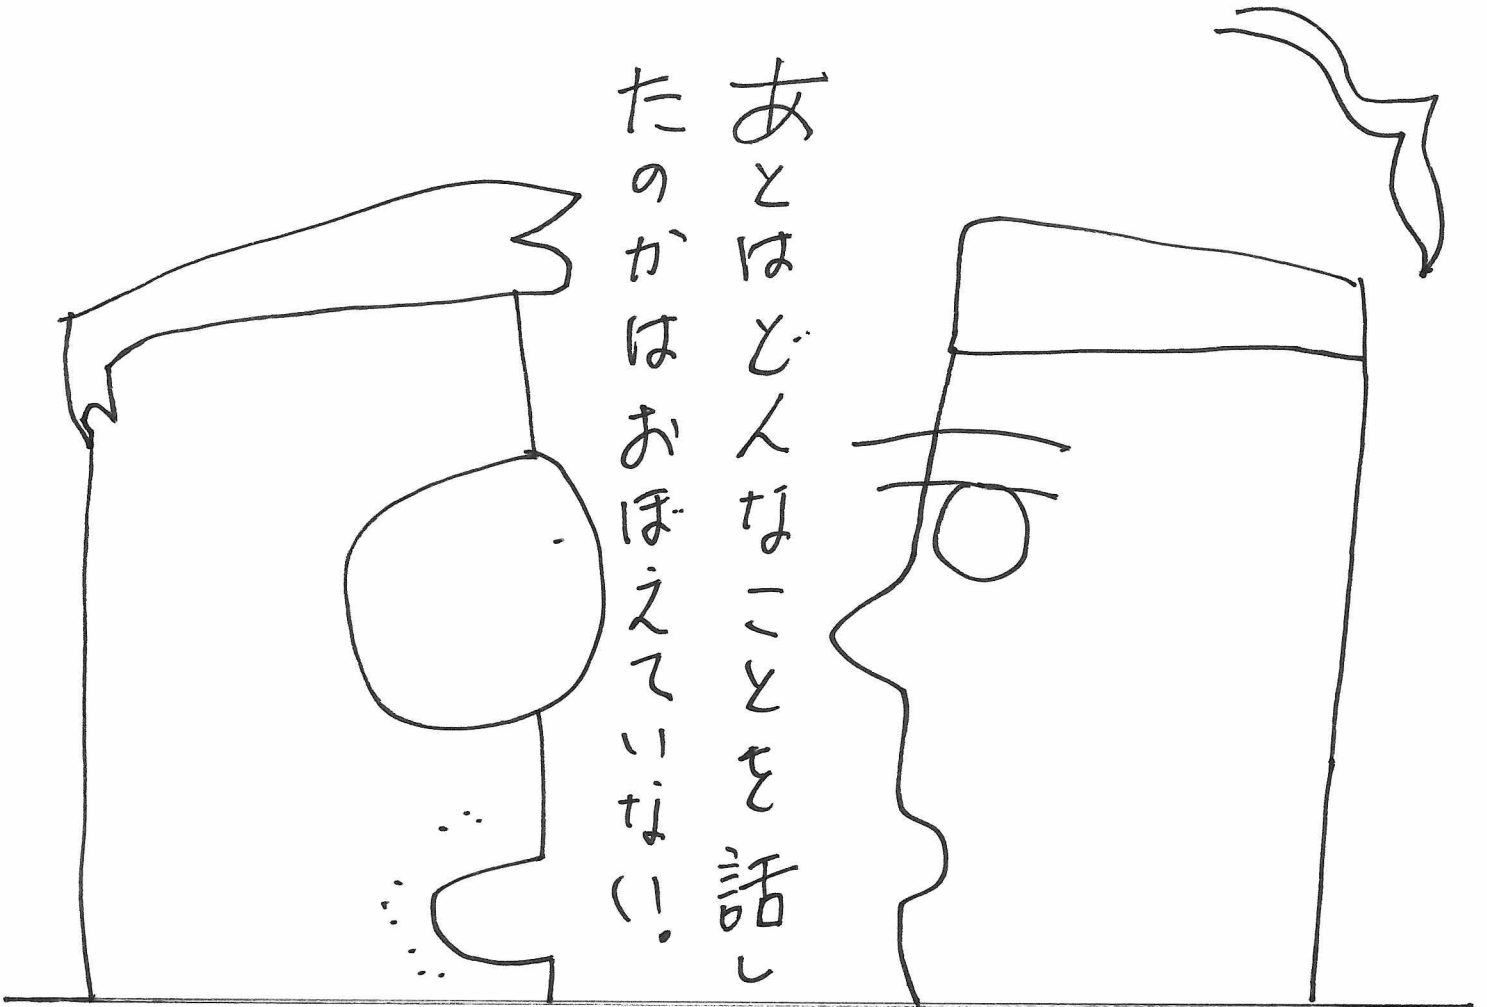 あとはどんなことを話し
たのかはおぼえていない.